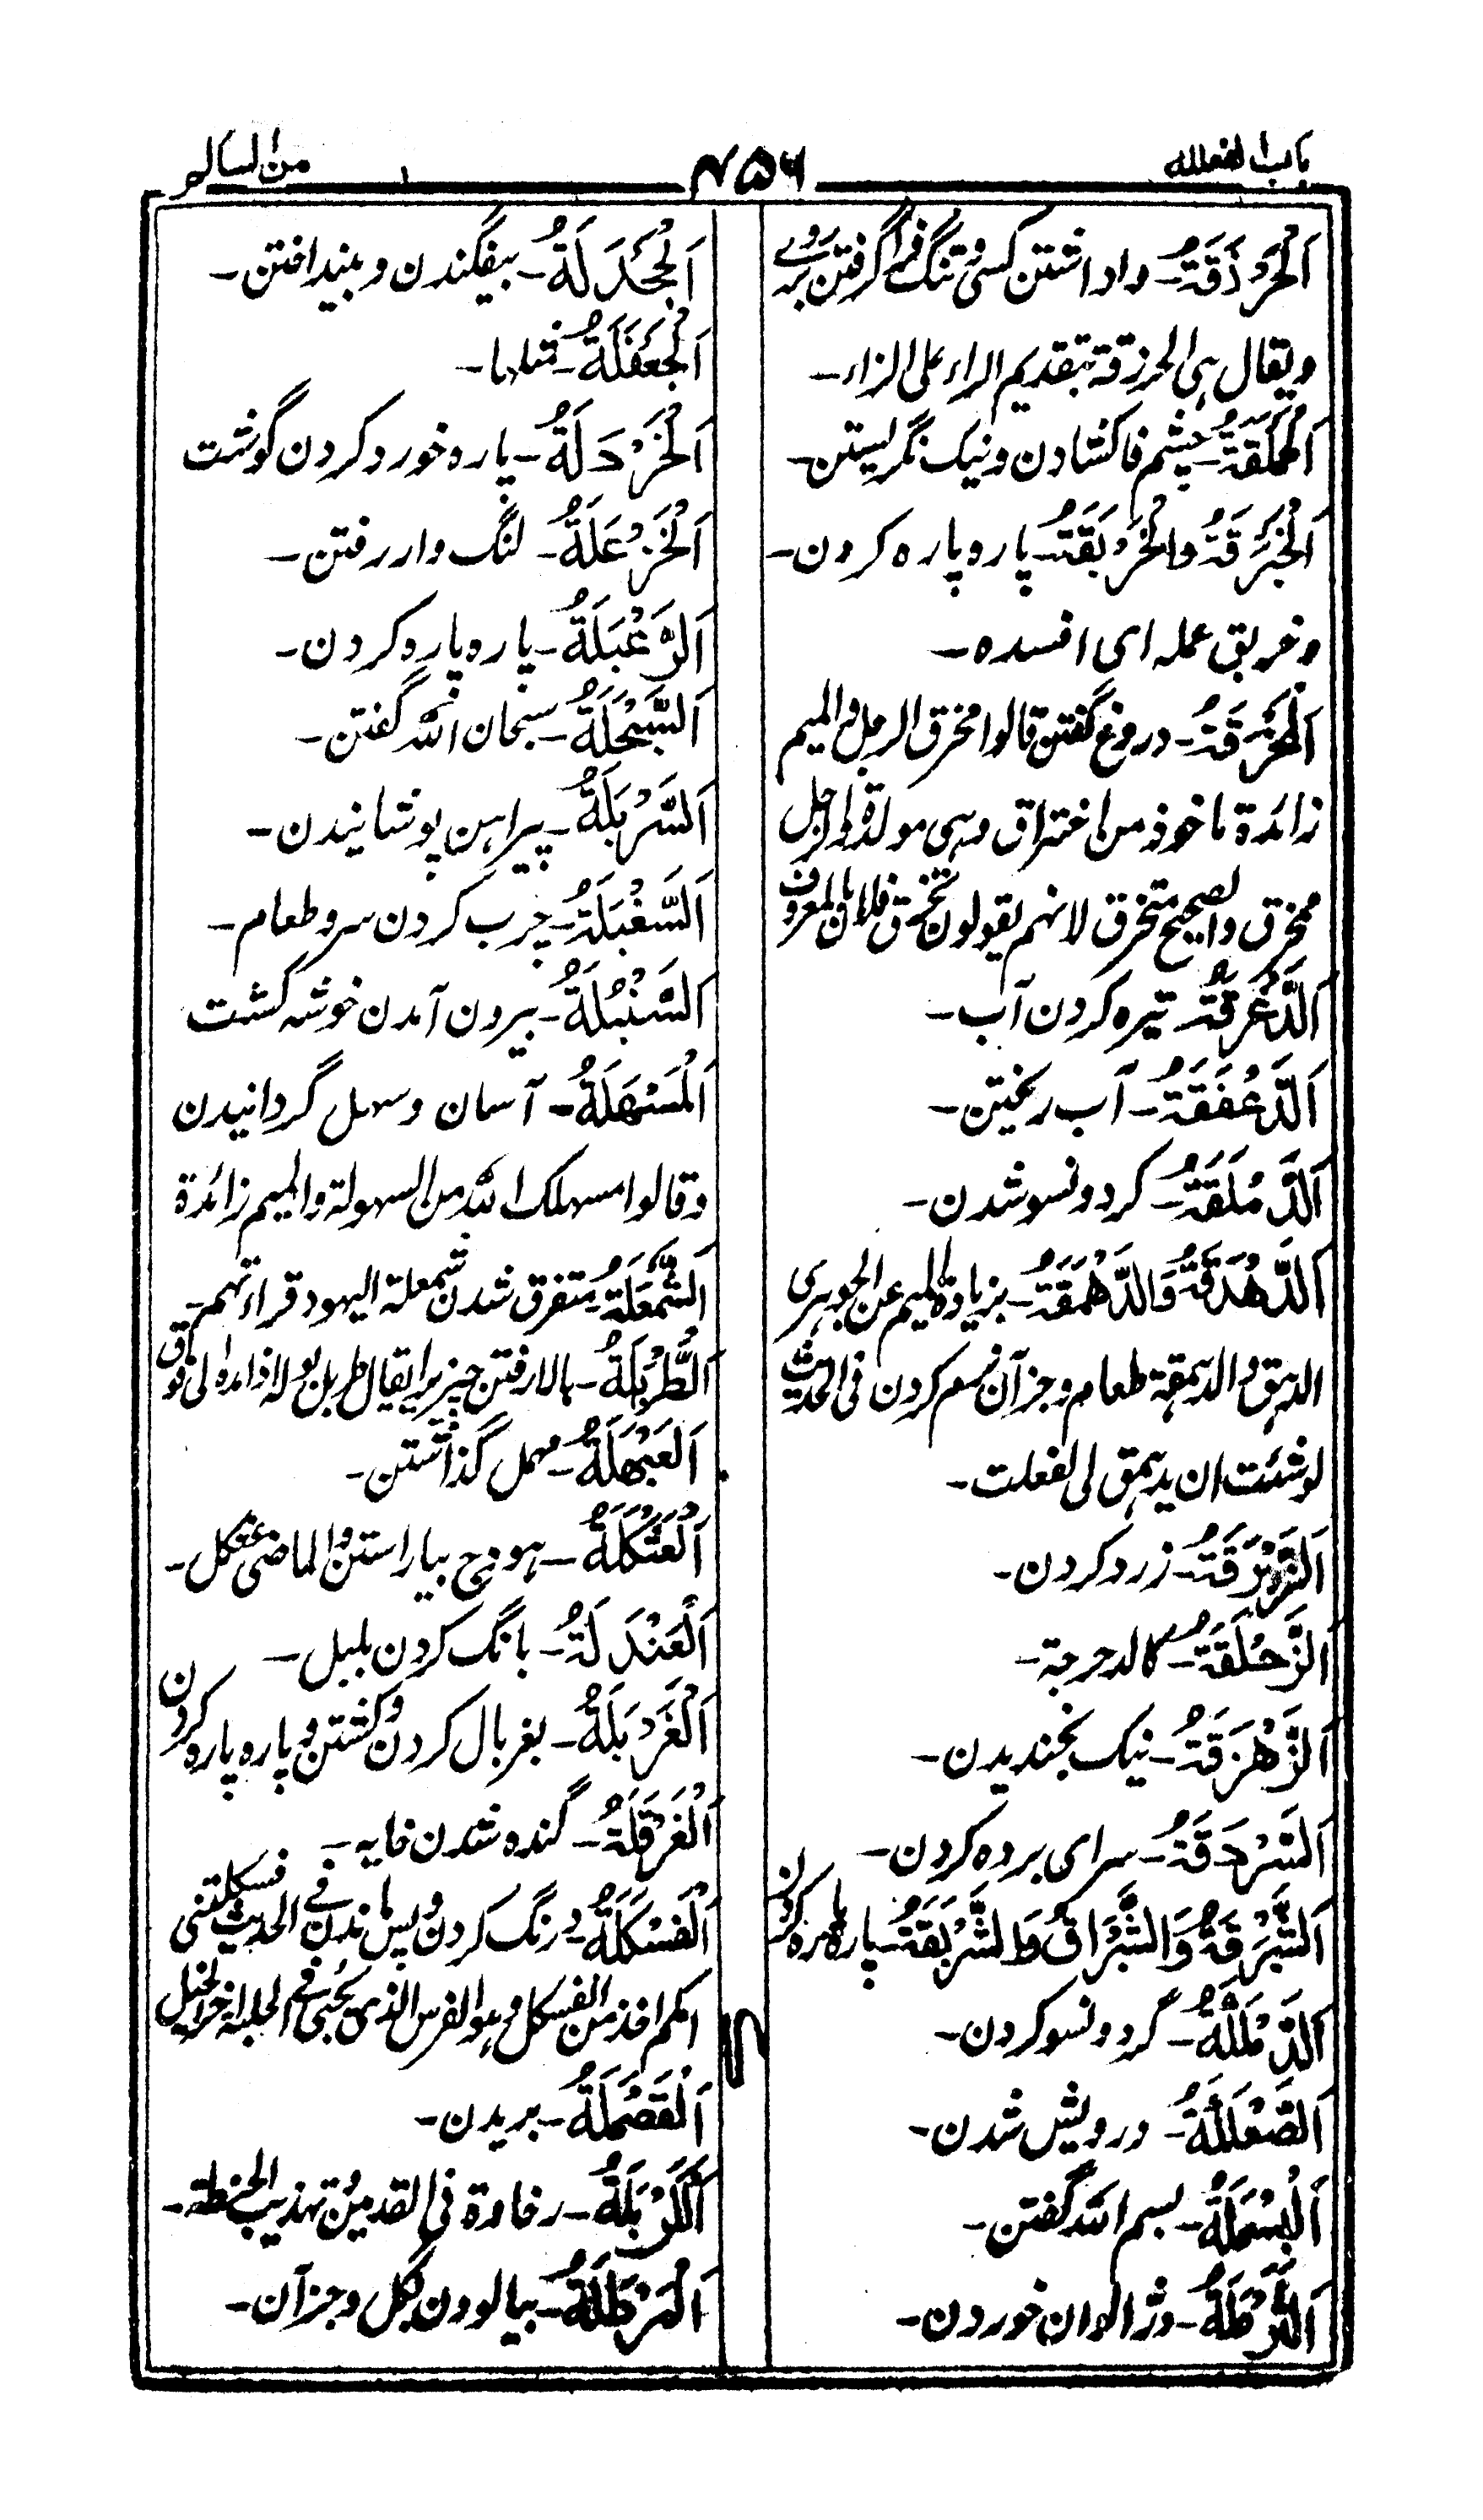 باب الفعلله
۴۵۶
من السالم
اَلْحَزْرَقَةُ۔ واداشتن کسی و تنگ فراگرفتن بروے
ویقال ہی الحرزقة بتقدیم الراء علی الزاء۔
اَلْحَمْلَقَةُ۔ چشم فاکشادن و نیک نگریستن۔
اَلْخَبْرَقَةُ والْخَرْبَقَةُ۔ پاره پاره کردن۔
و خربق عمله ای افسده۔
اَلْمَخْرَقَةُ۔ دروغ گفتن قالوا مخرق الرجل و المیم
زائدة ماخوذ من اختراق وہی مولدة والرجل
ممخرق والصحیح متخرق لانہم یقولون تخرق فلان بالمعروف
اَلدَّغْرَقَةُ۔ تیره کردن آب۔
اَلدَّغْفَقَةُ۔ آب ریختن۔
اَلدَّمْلَقَةُ۔ کرد و نسو شدن۔
اَلدَّهْدَقَةُ وَالدَّهْمَقَةُ۔ بزیادة المیم عن الجوہری
الدہق والدہمقة طعام و جز آن نرم کردن فی الحدیث
لوشئت ان یدہمق لی لفعلت۔
اَلزَّبْرَقَةُ۔ زرد کردن۔
اَلزَّحْلَقَةُ۔ کالدحرجة۔
اَلزَّهْزَقَةُ۔ نیک بخندیدن۔
اَلسَّرْدَقَةُ۔ سرای برده کردن۔
اَلشَّبْرَقَةُ وَالشِّبْرَاقُ وَالشَّرْبَقَةُ۔ پاره پاره کردن
اَلدَّمْلَكَةُ۔ گرد و نسو کردن۔
اَلصَّعْلَكَةُ۔ درویش شدن۔
اَلْبَسْمَلَةُ۔ بسم اللہ گفتن۔
اَلثَّرْمَلَةُ۔ خوردن۔
اَلْجَحْدَلَةُ۔ بیفگندن و بینداختن۔
اَلْجَعْفَلَةُ۔ مثلہا۔
اَلْخَرْدَلَةُ۔ پاره خورد کردن گوشت
اَلْخَزْعَلَةُ۔ لنگ وار رفتن۔
اَلرَّعْبَلَةُ۔ پاره پاره کردن۔
اَلسَّبْحَلَةُ۔ سبحان اللہ گفتن۔
اَلسَّرْبَلَةُ۔ پیراہن پوشانیدن۔
اَلسَّغْبَلَةُ۔ چرب کردن سر و طعام۔
اَلسَّنْبَلَةُ۔ بیرون آمدن خوشہ کشت
اَلْمَسْهَلَةُ۔ آسان و سہل گردانیدن
وقالوا مسہلک اللہ من السہولة والمیم زائدة
اَلشَّمْعَلَةُ۔ متفرق شدن شمعلة الیہود قراءتہم۔
اَلطَّرْبَلَةُ۔ بالا رفتن چیز یرا یقال طربل بولا اذا مده الی فوق
اَلْعَبْهَلَةُ۔ مہمل گذاشتن۔
اَلْعَثْكَلَةُ۔ ہودج بیاراستن والماضی عثکل۔
اَلْعَنْدَلَةُ۔ بانگ کردن بلبل۔
اَلْغَرْبَلَةُ۔ بغربال کردن و کشتن و پاره پاره کردن
اَلْغَرْقَلَةُ۔ گنده شدن خایہ۔
اَلْفَسْكَلَةُ۔ درنگ کردن و پس ماندن فی الحدیث فسکلتنی
امکم اخذ من الفسکل وہو الفرس الذی یجئ فی الحلبة اخر الخیل
اَلْقَصْمَلَةُ۔ بریدن۔
اَلْكَرْبَلَةُ۔ رخاوة فی القدمین و تہذیب الحنطة۔
اَلْمَرْطَلَةُ۔ بیالودن بگل و جز آن۔